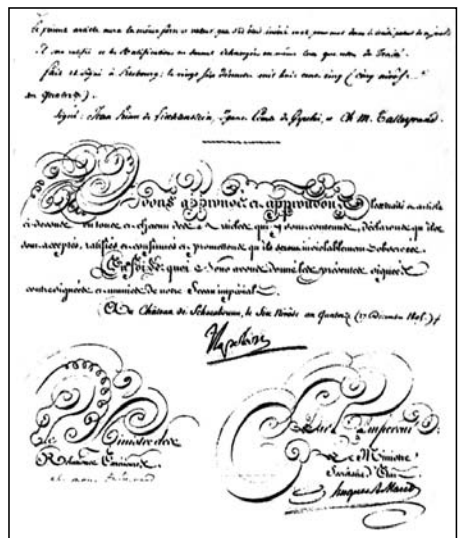 Le présent article aura la même force et valeur que s'il était inséré mot pour mot dans le traité patent de ce jour
Il sera ratifié et les Ratifications en seront échangées en même tems que celles du Traité.
fait et signé à Presbourg, le vingt six Décembre mil huit cent cinq (cinq nivôse
an quatorze).
Signé: Jean Prince de Liechtenstein, Ignace Comte de Gyulai, et Ch. M. Talleyrand.
Avons approuvé et approuvons le traité et article
ci-dessus en tous et chacun des articles qui y sont contenus, déclarons qu'ils
sont acceptés, ratifiés et confirmés et promettons qu'ils seront inviolablement observés.
En foi de quoi Nous avons donné les présentes signées
contresignées et munies de notre Sceau impérial
Au Château de Schoenbrunn, le Six Nivôse an Quatorze (27 Décembre 1805)
Napoléon
Par l'Empereur
Le Ministre des
Relations Extérieures
Le Ministre
Secrétaire d'Etat
Hugues B. Maret